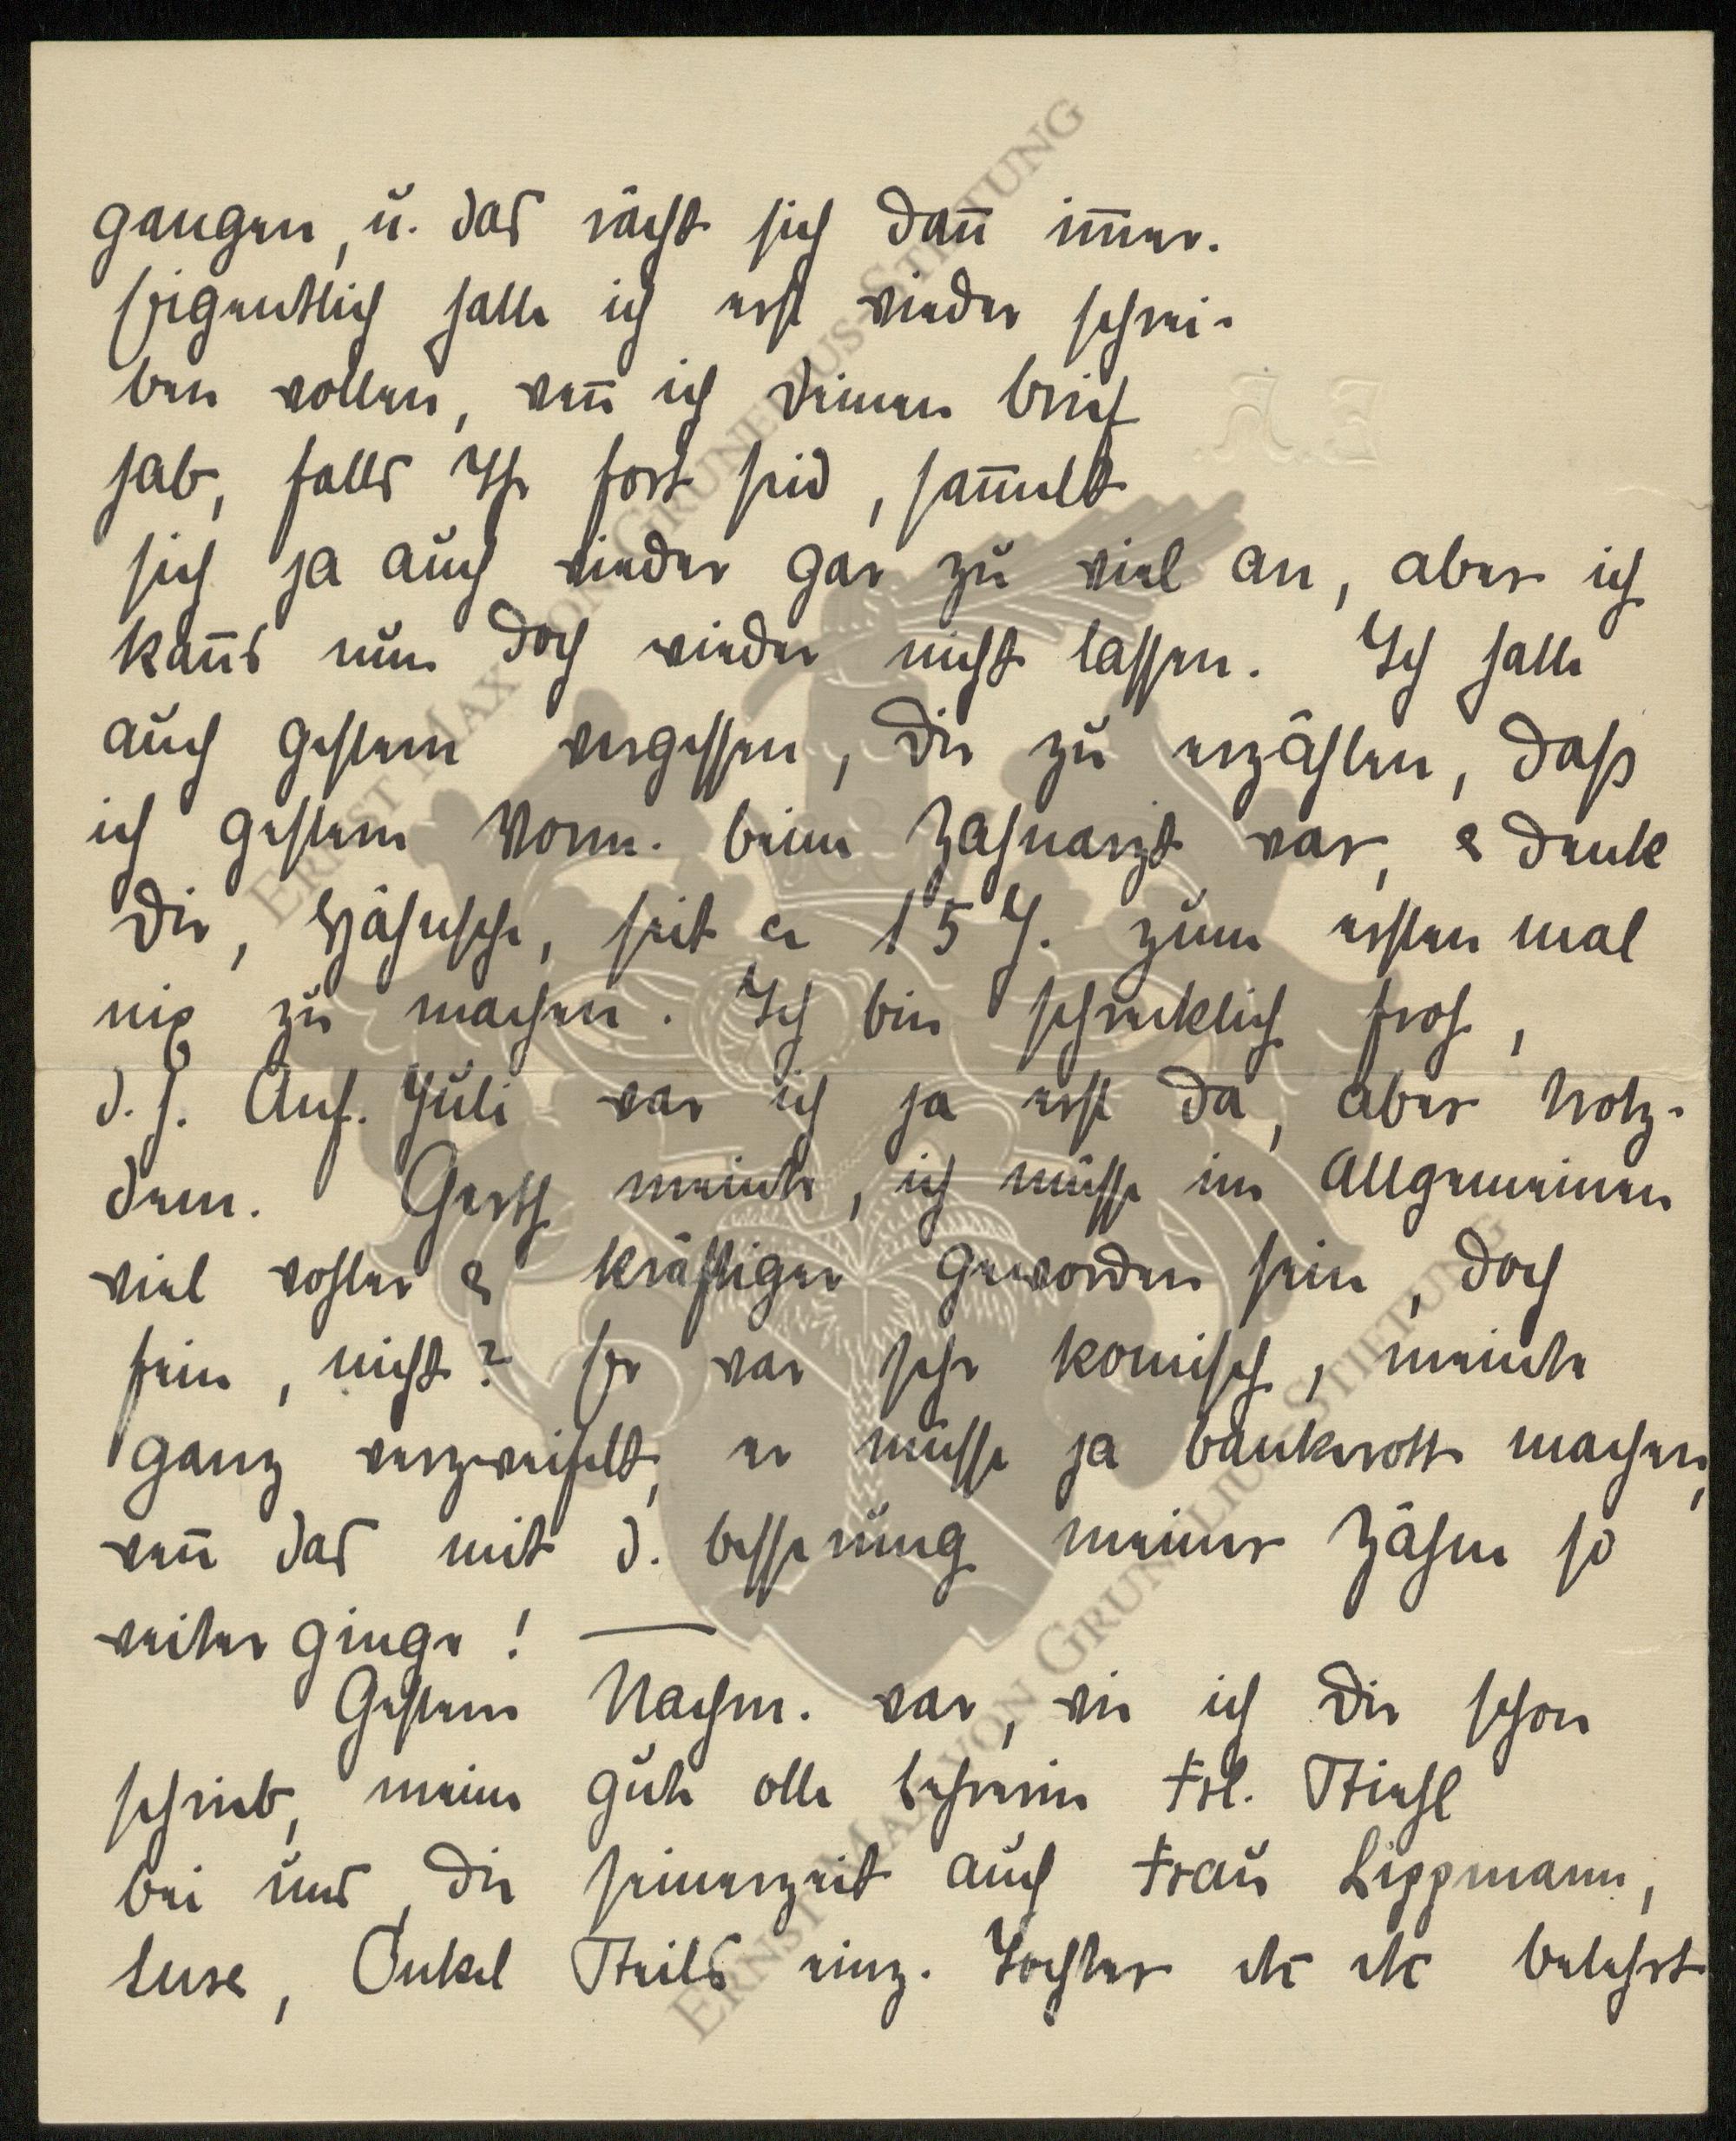 gangen, u. das rächt sich dan̅ im̅er.
Eigentlich hatte ich erst wieder schrei-
ben wollen, wen̅ ich Deinen Brief
hab, falls Ihr fort seid, sam̅elt
sich ja auch wieder gar zu viel an, aber ich
kan̅s nun doch wieder nicht lassen. Ich hatte
auch gestern vergessen, Dir zu erzählen, daß
ich gestern Vorm. beim Zahnarzt war, & denk
Dir, Hänsche, seit ca 15 J. zum ersten mal
nix zu machen. Ich bin schrecklich froh,
d. h. Anf. Juli war ich ja erst da, aber trotz-
dem. Gerth meinte, ich müsse im Allgemeinen
viel wohler & kräftiger geworden sein, doch
fein, nicht? Er war sehr komisch, meinte
ganz verzweifelt, er müsse ja bankrott machen,
wen̅ das mit d. Besserung meiner Zähne so
weiter ginge! —
Gestern Nachm. war, wie ich Dir schon
schrieb, meine gute olle Lehrerin Frl. Thiehl
bei uns, die seinerzeit auch Frau Lippmann,
Onkel Theils einz. Tochter etc etc belehrt
E. A.
ERNST MAX VON GRUNELIUS-STIFTUNG
ERNST MAX VON GRUNELIUS-STIFTUNG